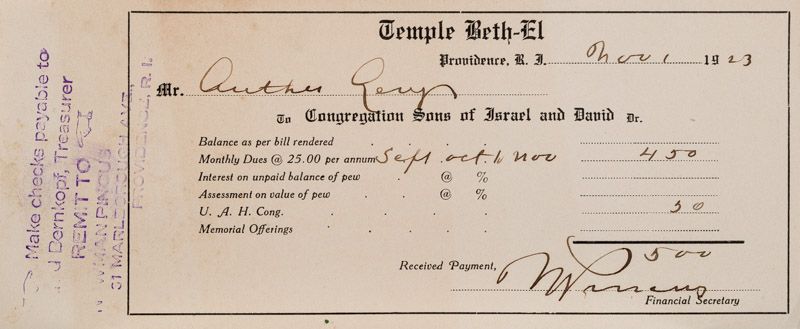 Temple Beth-El
Providence, R. I. Nov 1 1923
Mr. Arthur Levy
To Congregation Sons of Israel and David Dr.
Balance as per bill rendered
Monthly Dues @ 25.00 per annum Sept Oct Nov 4 50
Interest on unpaid balance of pew @ %
Assessment on value of pew @ %
U. A. H. Cong. 50
Memorial Offerings
5 00
Received Payment, N Pincus
Financial Secretary
Make checks payable to
d Dernkopf, Treasurer
REMIT TO
N WMAN PINCUS
31 MARLBOROUGH AVE.,
PROVIDENCE, R. I.